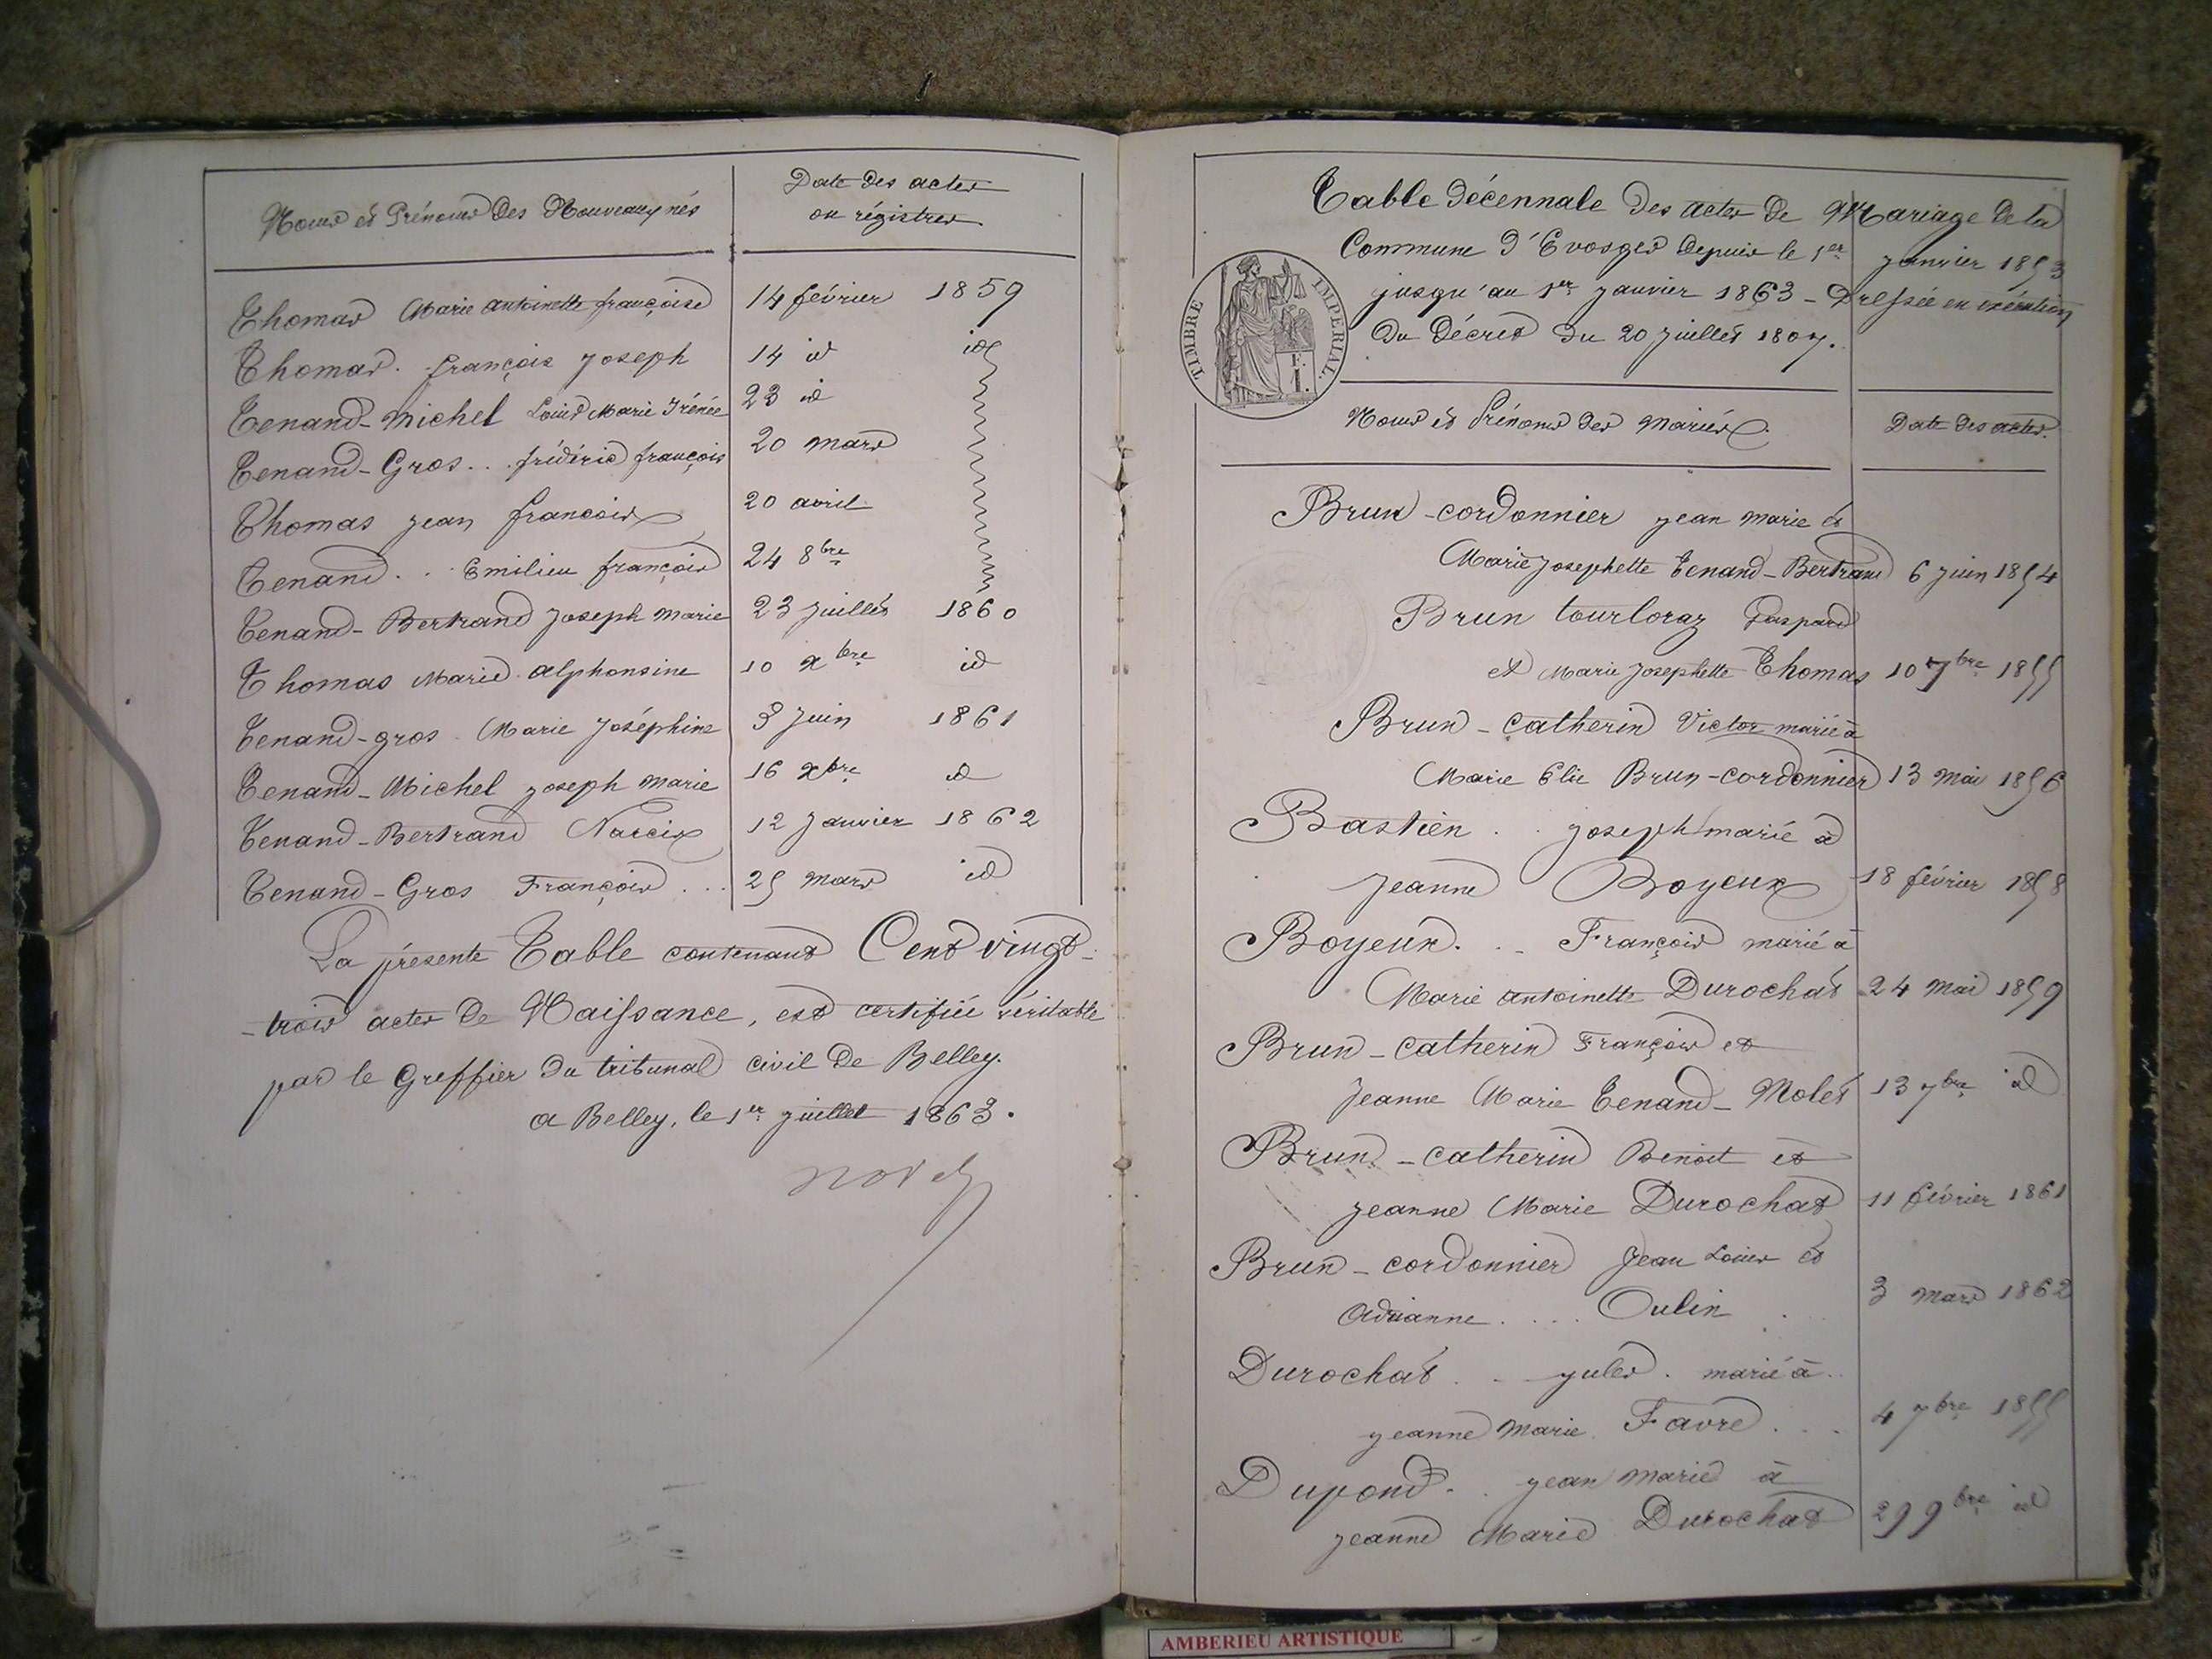 Noms et Prénoms des Nouveaux nés
Date des actes
ou régistres
Thomas Marie antoinette françoise 14 février 1859
Thomas. françois Joseph 14 id id
Tenand-Michel Louis Marie Irénée 23 id
Tenand-Gros... frédéric françois 20 mars
Thomas jean francois 20 avril
Tenand... Emilien françois 24 8bre
Tenand-Bertrand Joseph Marie 23 juillet 1860
Thomas Marie alphonsine 10 xbre id
Tenand-gros. Marie Joséphine 3 Juin 1861
Tenand-Michel joseph marie 16 xbre id
Tenand-Bertrand Narcis 12 Janvier 1862
Tenand-Gros François... 25 mars id
La présente Table contenant Cent vingt-
-trois actes de Naissance, est certifiée véritable
par le Greffier du tribunal civil de Belley.
a Belley, le 1er juillet 1863.
Table décennale des actes de Mariage de la
Commune d'Evosges Depuis le 1er janvier 1853
jusqu'au 1er janvier 1863 - Dressée en exécution
du Décret du 20 juillet 1807.
TIMBRE IMPERIAL.
E. I.
Noms et Prénoms des mariés
Date des actes.
Brun-cordonnier jean marie et
Marie Josephette Tenand-Bertrand 6 juin 1854
Brun tourloraz Gaspard
et Marie Josephette Thomas 10 7bre 1855
Brun-catherin Victor marié à
Marie Elie Brun-cordonnier 13 mai 1856
Bastien.. joseph marié à
Jeanne Boyeux 18 février 1858
Boyeux... François marié à
Marie antoinette Durochat 24 mai 1859
Brun-catherin François et
Jeanne Marie Tenand-Molet 13 7bre id
Brun-catherin Benoit et
jeanne Marie Durochat 11 février 1861
Brun-cordonnier Jean Louis et
Adrianne.... Oulin 3 mars 1862
Durochat.. jules. marié à..
jeanne marie Favre... 4 7bre 1855
Dupond.. jean marié à
jeanne Marie Durochat 29 9bre id
AMBERIEU ARTISTIQUE